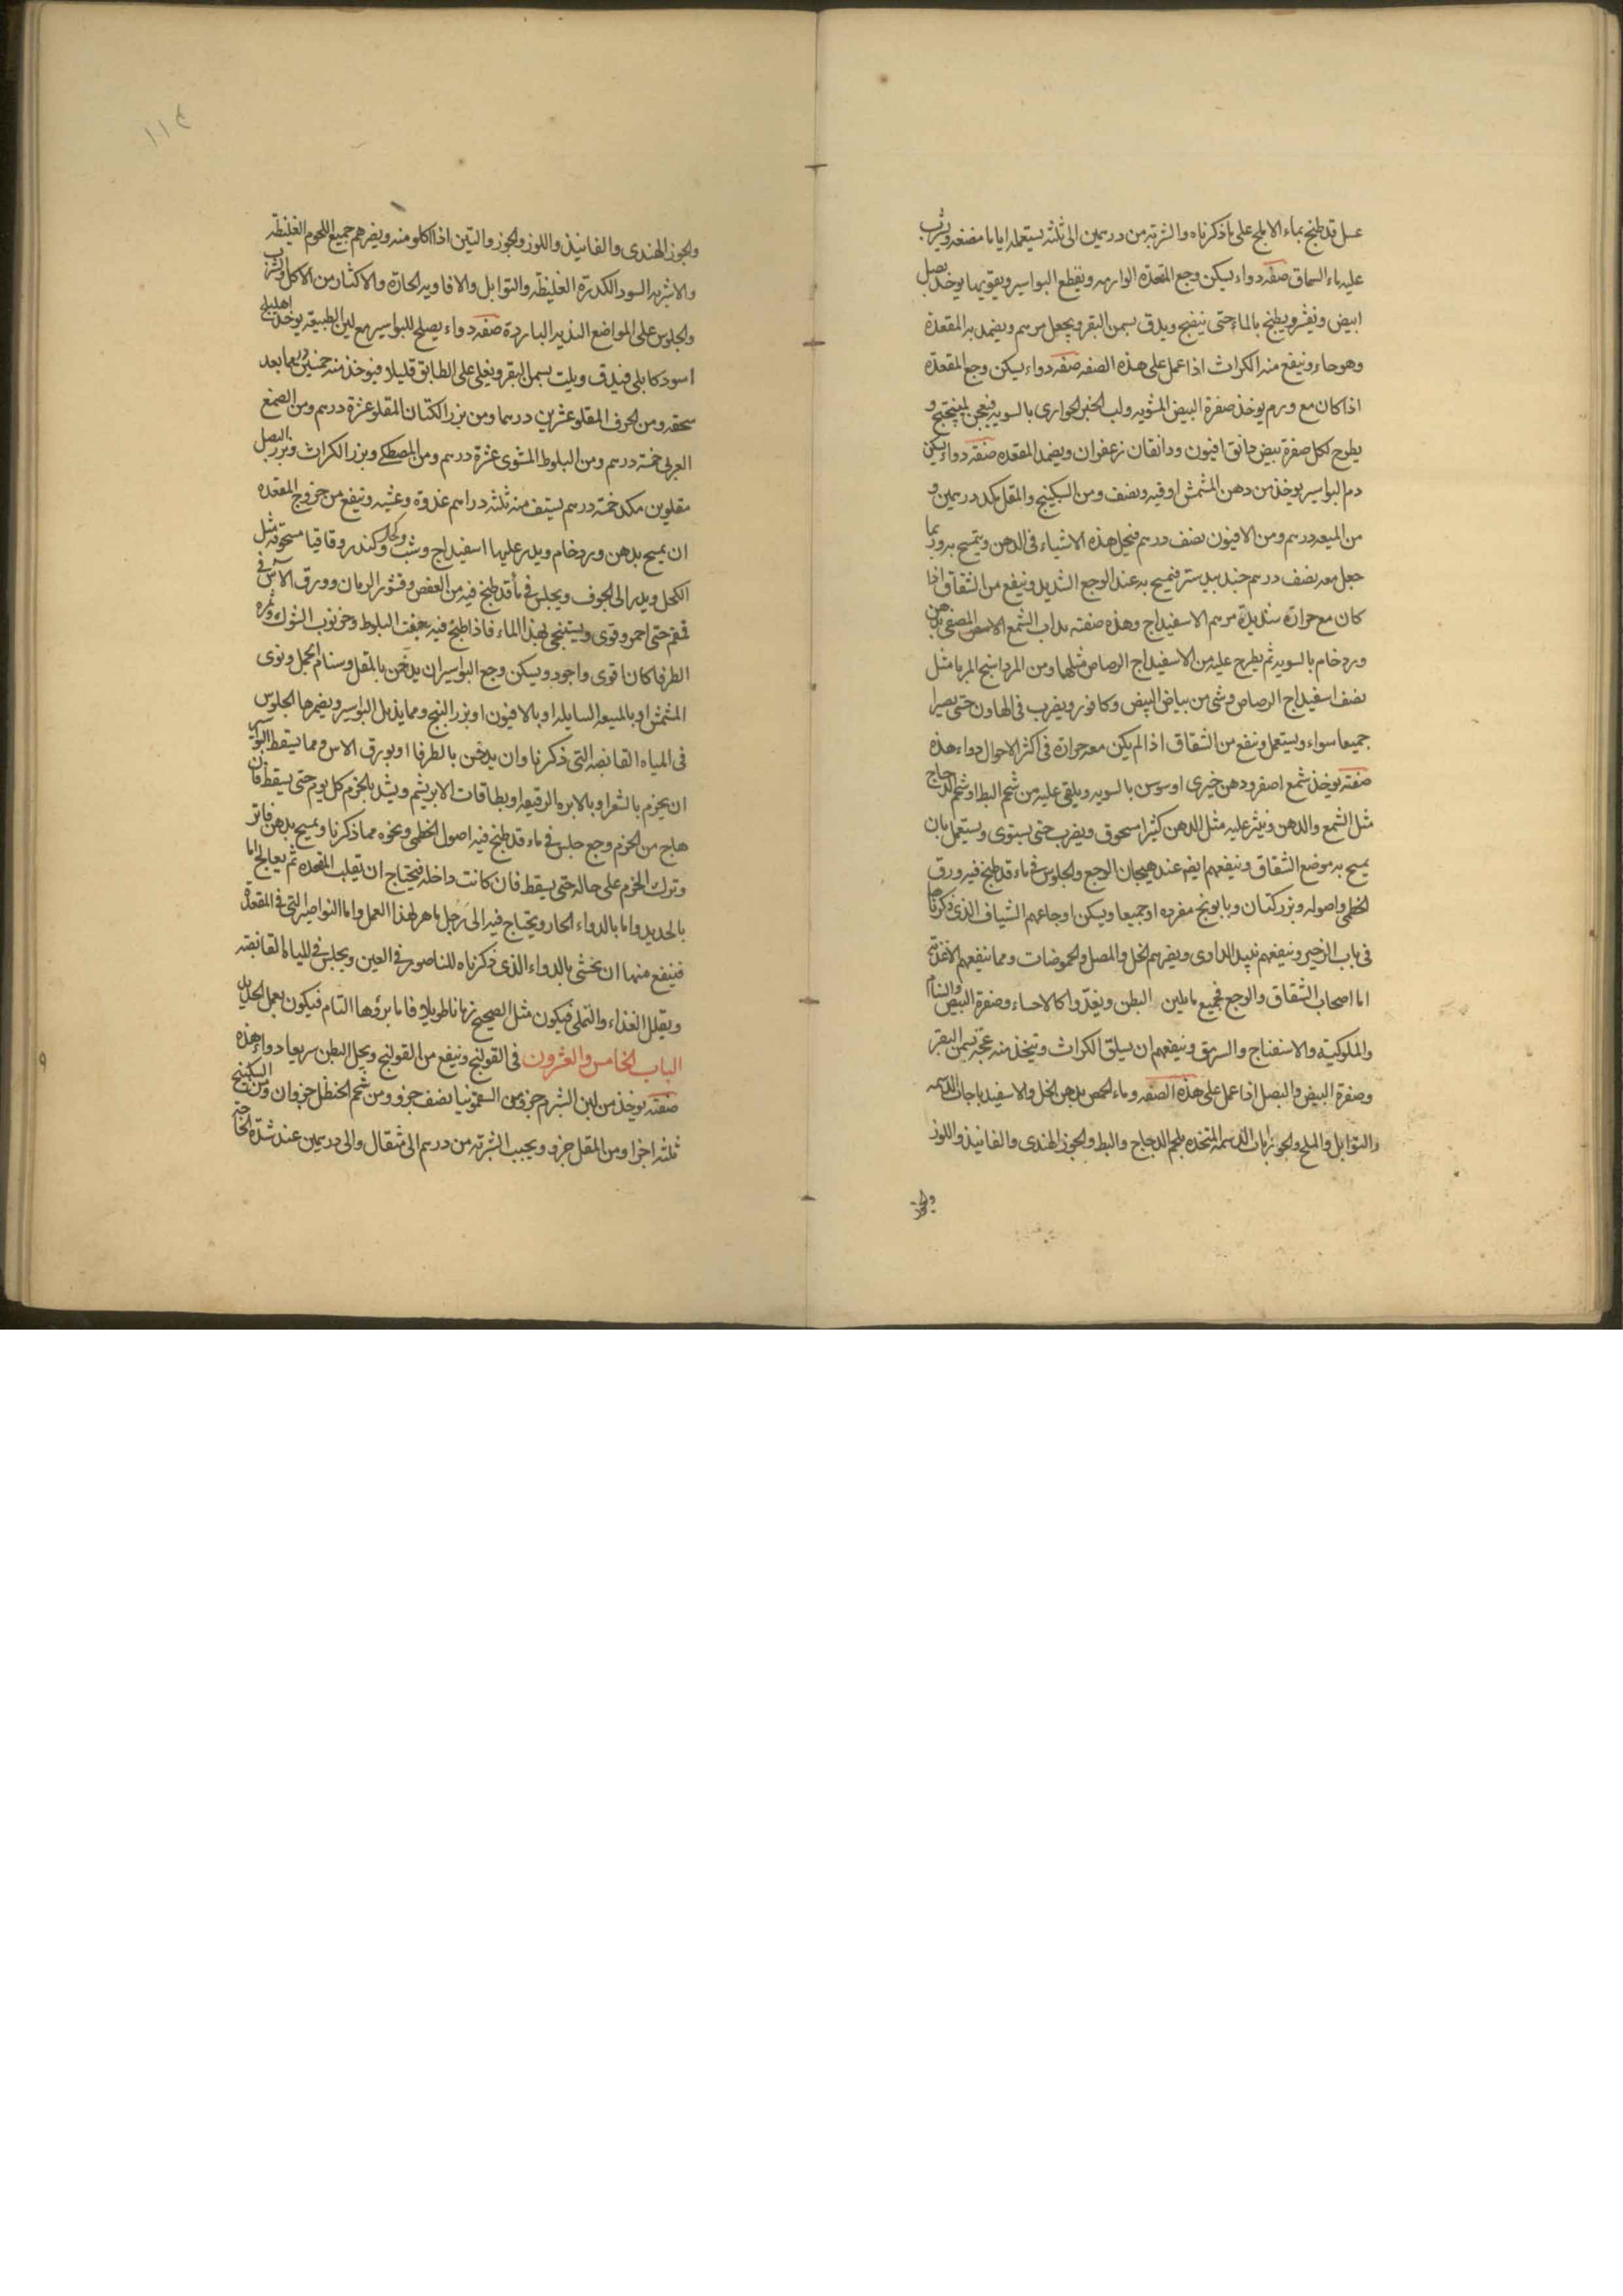 عسل قد طبخ بماء الابلج على ما ذكرناه والشربة من درهمين الى ثلثة يستعمله اياما مضغه ويشرب
عليه ماء السماق صفة دواء يسكن وجع المقعدة الوارمه ويقطع البواسير ويقويها يوخذ بصل
ابيض ويقشر ويطبخ بالماء حتى ينضج ويدق بسمن البقر ويجعل مرهم ويضمد به المقعدة
وهو حار وينفع منه الكراث اذا عمل على هذه الصفه صفة دواء يسكن وجع المقعدة
اذا كان مع ورم يوخذ صفرة البيض المشويه ولب الخبز الحوارى بالسويه فيعجن بميبختج و
يطرح لكل صفرة بيض دانق افيون ودانقان زعفران ويضمد المقعده صفة دواء يسكن
دم البواسير يوخذ من دهن المشمش اوقيه ونصف ومن السكبينج والمقل مكد درهمين و
من الميعه درهم ومن الافيون نصف درهم فيحل هذه الاشياء فى الدهن ويتمسح به وربما
جعل معه نصف درهم جندبيدستر فيمسح به عند الوجع الشديد وينفع من الشقاق اذا
كان مع حرارة شديدة مرهم الاسفيداج وهذه صفته يداب الشمع الابيض المصفى بدهن
ورد خام بالسويه ثم يطرح عليه من الاسفيداج الرصاص مثلهما ومن المرداسنج المربا مثل
نصف اسفيداج الرصاص وشى من بياض البيض وكافور ويضرب فى الهاون حتى يصيرا
جميعا سواء ويستعمل وينفع من الشقاق اذا لم يكن معه حرارة فى اكثر الاحوال دواء هذه
صفته يوخذ شمع اصفر ودهن خيرى او سوسن بالسويه ويلقى عليه من شحم البط او شحم الدجاج
مثل الشمع والدهن وينثر عليه مثل الدهن كثيرا مسحوق ويضرب حتى يستوى ويستعمل بان
يمسح به موضع الشقاق وينفعهم ايضا عند هيجان الوجع والجلوس فى ماء قد طبخ فيه ورق
الخطمى واصوله وبزر كتان وبابونج مفرده او جميعا ويسكن اوجاعهم الشياف الذى ذكرناها
فى باب الزحير وينفعهم نبيذ الداوى ويضرهم الخل والمصل والحموضات ومما ينفعهم الاغذية
اما اصحاب الشقاق والوجع فجميع ما يلين البطن ويغذوا كالاحساء وصفرة البيض والسنام
والملوكية والاسفناج والسرمق وينفعهم ان يسلق الكراث ويتخذ منه عجة بسمن البقر
وصفرة البيض والبصل اذا عمل على هذه الصفه وماء الحمص بدهن الخل والاسفيدباجات الدسمه
والتوابل والملح والجوزابات الدسمه المتخذه بلحم الدجاج والبط والجوز الهندى والفانيذ واللوز
والجوز
١١٤
والجوز الهندى والفانيذ واللوز والجوز والتين اذا اكلو منه ويضرهم جميع اللحوم الغليظه
والاشربه السود الكدرة الغليظه والتوابل والافاويه الحارة والاكثار من الاكل والشرب
والجلوس على المواضع النديه الباردة صفة دواء يصلح للبواسير مع لين الطبيعه يوخذ اهليلج
اسود كابلى فيدق ويلت بسمن البقر ويغلى على الطابق قليلا فيوخذ منه خمسين درهما بعد
سحقه ومن الحرف المقلو عشرين درهما ومن بزر الكتان المقلو عشرة درهم ومن الصمغ
العربى خمسة درهم ومن البلوط المشوى عشرة درهم ومن المصطكى وبزر الكراث وبزر البصل
مقلوين مكد خمسة درهم يستف منه ثلثة دراهم غدوة وعشيه وينفع من خروج المقعده
ان يمسح بدهن ورد خام ويذر عليها اسفيداج وشب وكحل وكندر وقاقيا مسحوقه مثل
الكحل ويدس الى الجوف ويجلس فى ماء قد طبخ فيه من العفص وقشور الرمان وورق الآس فى
قمقم حتى احمر وقوى ويستنجى بهذا الماء فاذا طبخ فيه جفت البلوط وخرنوب الشوك وثمرة
الطرفا كان اقوى واجود ويسكن وجع البواسير ان يدخن بالمقل وسنام الجمل ونوى
المشمش او بالميعه السايله او بالافيون او بزر البنج ومما يذبل البواسير ويضمرها الجلوس
فى المياه القابضه التى ذكرنا وان يدخن بالطرفا او بورق الاس ومما يسقط البواسير
ان يخزم بالشعر او بالابره الرقيعه او بطاقات الابريشم ويشد بالخزم كل يوم حتى يسقط فان
هاج من الخزم وجع جلس فى ماء قد طبخ فيه اصول الخطمى ونحوه مما ذكرنا ويمسح بدهن فاتر
وترك الخزم على حاله حتى يسقط فان كانت داخله فيحتاج ان تقلب المقعده ثم يعالج اما
بالحديد واما بالدواء الحار ويحتاج فيه الى رجل ماهر لهذا العمل واما النواصير التى فى المقعدة
فينفع منها ان يحشى بالدواء الذى ذكرناه للناصور فى العين ويجلس فى المياه القابضه
ويقلل الغذاء والتملى فيكون مثل الصحيح زمانا طويلا فاما برؤها التام فيكون بعمل الحديد
الباب الخامس والعشرون فى القولنج وينفع من القولنج ويحل البطن سريعا دواء هذه
صفته يوخذ من لبن الشبرم جزو من السقمونيا نصف جزو ومن شحم الحنظل جزوان ومن السكبينج
ثلثة اجزا ومن المقل جزو ويحبب الشربه من درهم الى مثقال والى درهمين عند شدة الحاجة